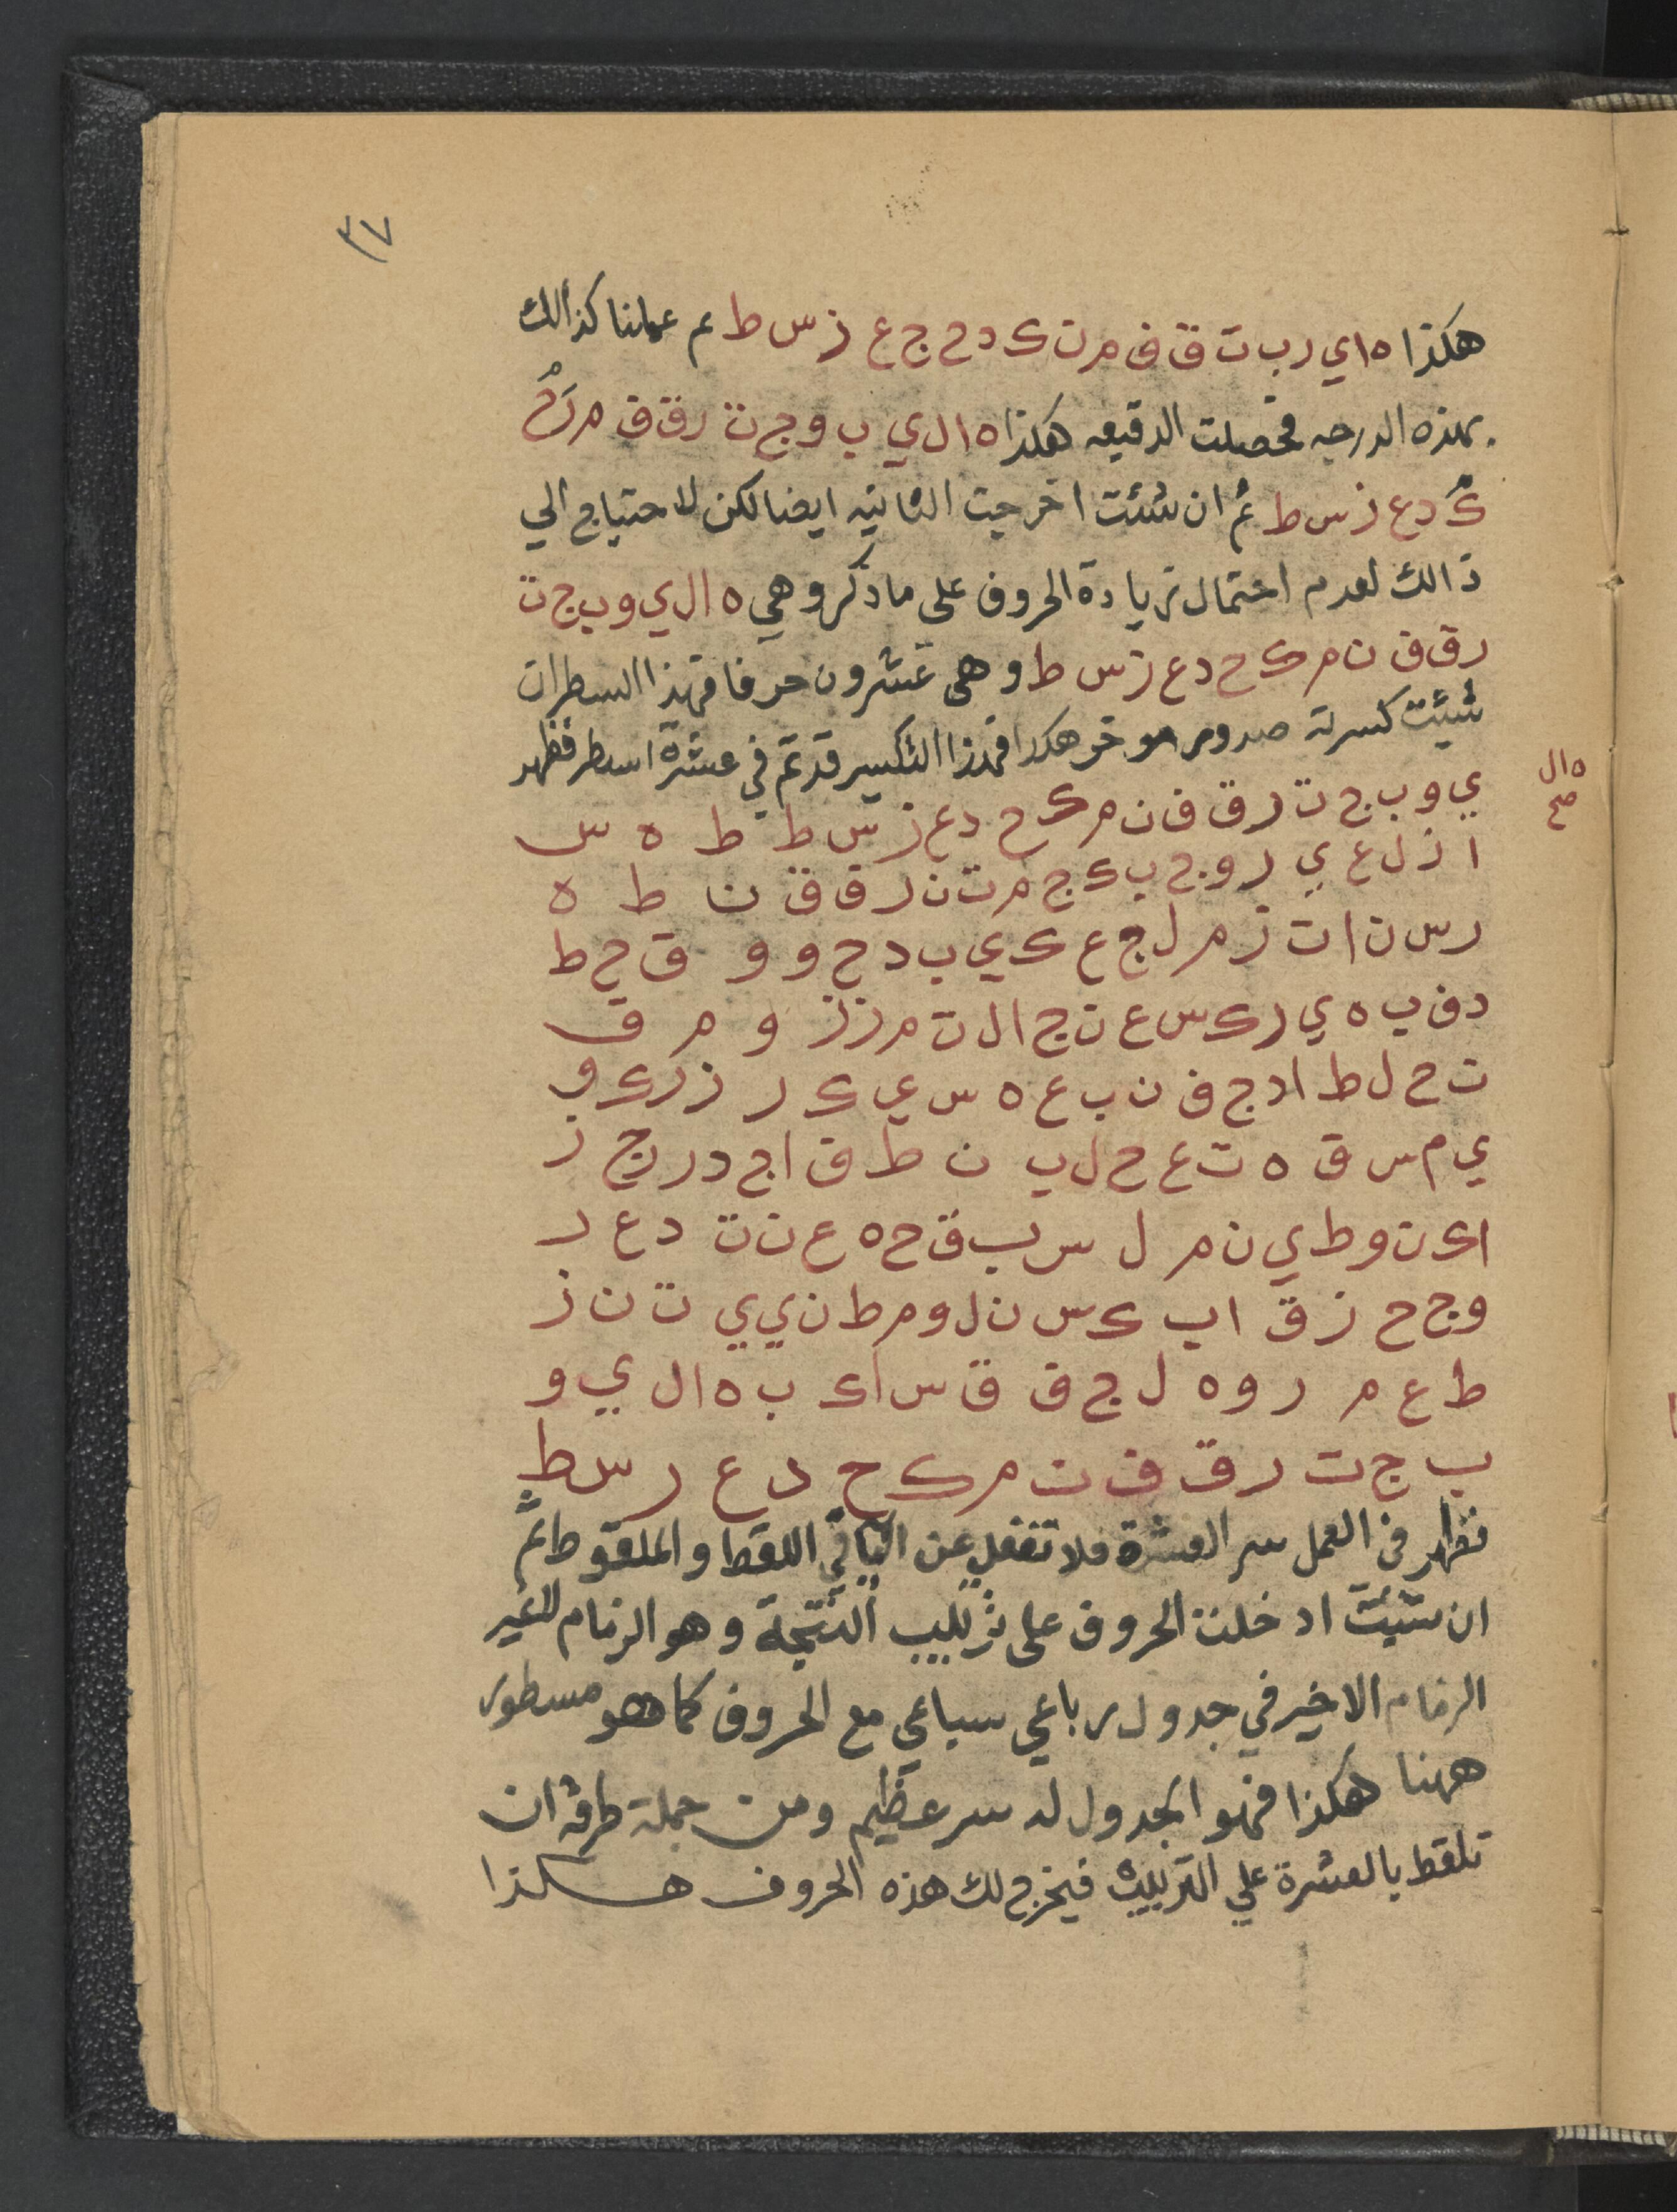 ٣٧
هكذا ه ا ي ر ب ت ق ف م ن ك د ح ج ع ز س ط م عملنا كذالك
بهذه الدرجه فحصلت الدقيقه هكذا ه ا ل ي ب و ج ت ر ق ف م ن ح
ك د ع ز س ط ثم ان شئت اخرجت الثانيه ايضا لكن لاحتياج الي
ذالك لعدم احتمال زيادة الحروف على ما ذكر وهي ه ا ل ي و ب ج ت
ر ق ف ن م ك ح د ع ز س ط وهى عشرون حرفا فهذا السطر ان
شيئت كسرته صدور موخر هكذا فهذا التكسير قد تم في عشرة اسطر فظهر
ه ا ل
صح
ي و ب ج ت ر ق ف ن م ك ح د ع ز س ط ط ه س
ا ز ل ع ي د و ح ب ك ج م ت ن ر ف ق ن ط ه
ر س ن ا ت ز م ل ج ع ك ي ب د ح و و ق ح ط
د ف ب ه ي ر ك س ع ن ج ا ل ت م ز ز و م ق
ت ح ل ط ا د ج ف ن ب ع ه س ي ك ر ز ر ك و
ي م س ق ه ت ع ح ل ب ن ط ف ا ج د ر ج ز
ا ك ن و ط ي ن م ل س ب ق ح ه ع ن ت د ع ر
و ج ح ز ق ا ب ك س ن ل و م ط ن ي ي ت ن ز
ط ع م ر و ه ل ج ق ق س ا ك ب ه ا ل ي و
ب ج ت ر ق ف ن م ك ح د ع ر س ط
فظهر فى العمل سر العشرة فلا تغفل عن الباقي اللقط والملقوط ثم
ان شيئت ادخلت الحروف على النتيجة وهو الزمام الغير
الزمام الاخير في جدول رباعي سباعي مع الحروف كما هو مسطور
ههنا هكذا فهو الجدول له سر عظيم ومن جملة طرقه ان
تلقط بالعشرة علي الترتيب فيخرج لك هذه الحروف هكذا